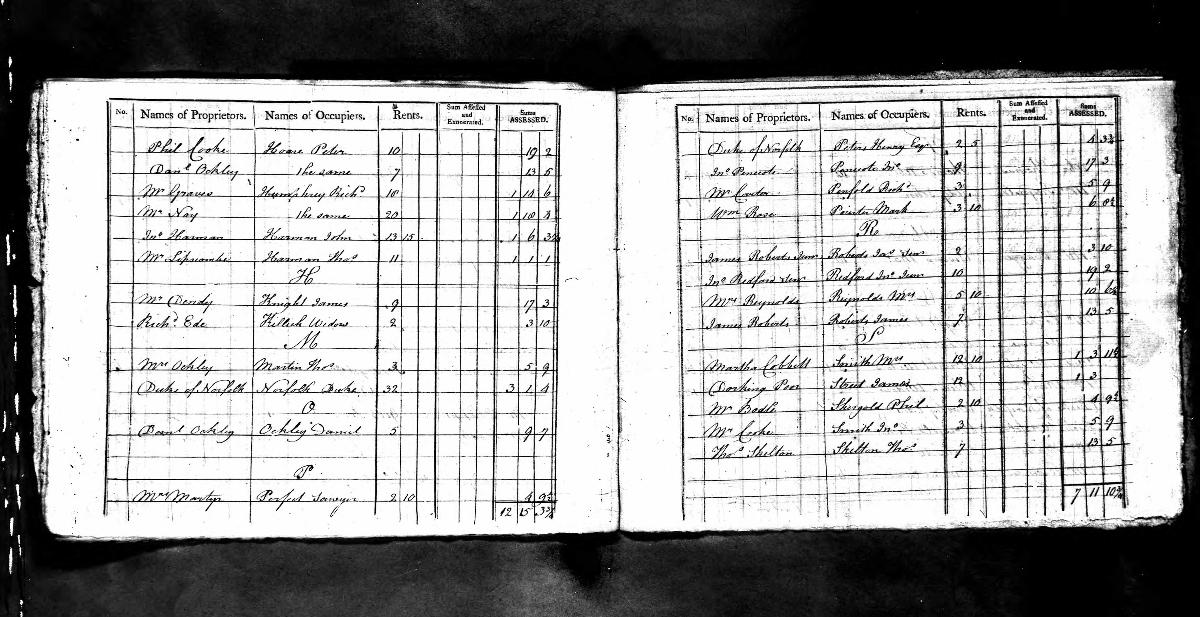 No. Names of Proprietors. Names of Occupiers. Rents. Sum Assessed and Exonerated. Sums ASSESSED.
Phil Cooke Hoare Peter 10 19 2
Danl Ockley the same 7 13 5
Mr Graves Humphrey Richd 18 1 14 6
Mr Nay the same 20 1 18 4
Jno Harman Harman John 13 15 1 6 3¾
Mr Lipscombe Harman Thos 11 1 1 1
Mr Dendy Knight James 9 17 3
Richd Ede Killick Widow 2 3 10
M
Mrs Ockley Martin Thos 3 5 9
Duke of Norfolk Norfolk Duke 32 3 1 4
O
Danl Ockley Ockley Daniel 5 9 7
P
Mrs Martyr Perfect Sawyer 2 10 4 9½
12 15 3¾
No. Names of Proprietors. Names of Occupiers. Rents. Sum Assessed and Exonerated. Sums ASSESSED.
Duke of Norfolk Peters Henry Esqr 2 5 4 3¾
Jno Penicote Jno 9 17 3
Mr Penfold Richd 3 5 9
Wm Rose Pointer Mark 3 10 6 8½
R
James Roberts Roberts Jas 2 3 10
Jno Redford Senr Redford Jno Senr 10 19 2
Mrs Reynolds Reynolds Mrs 5 10 10 6½
James Roberts Roberts James 7 13 5
S
Martha Cobbett Smith Mrs 12 10 1 3 11½
Dorking Poor Street James 12 1 3
Mr Beedle Shergold Phil 2 10 4 9½
Mr Cooke Smith Jno 3 5 9
Thos Skelton Skelton Thos 7 13 5
7 11 10¾